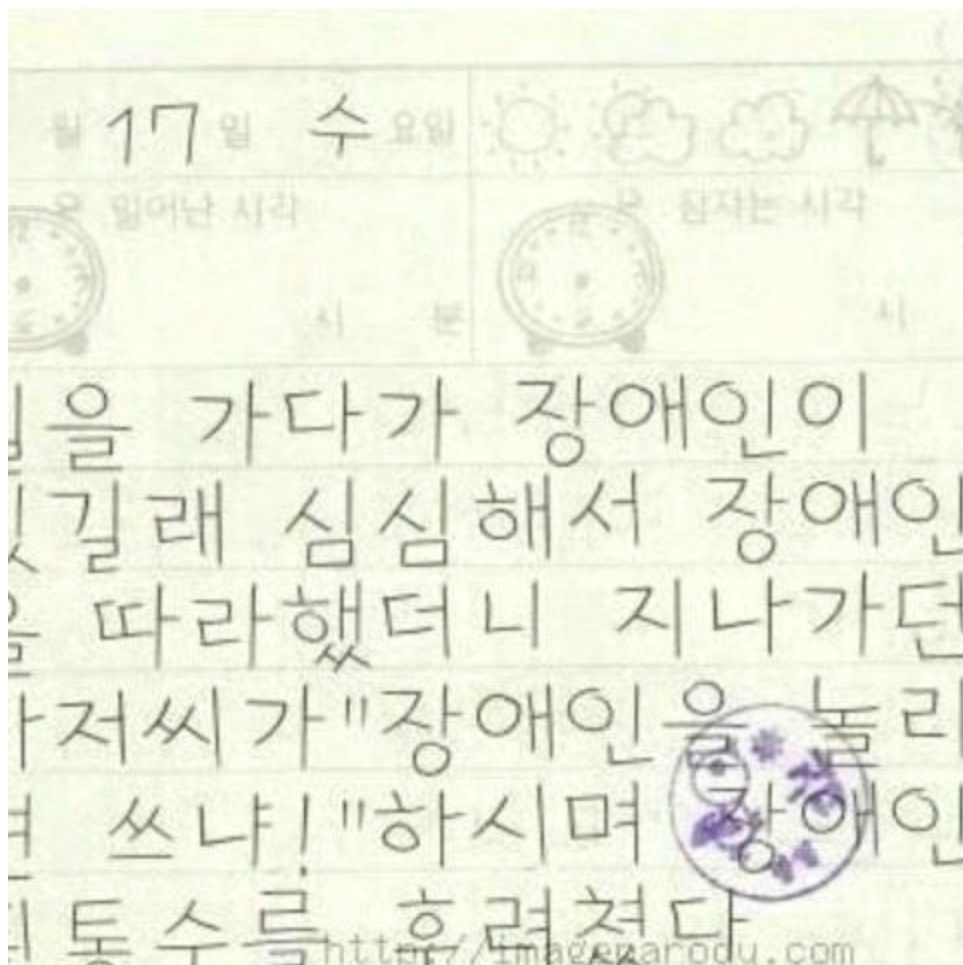 월 17일 수요일
일어난 시각 잠자는 시각
시 분 시
을 가다가 장애인이
길래 심심해서 장애인
따라했더니 지나가던
저씨가"장애인을 놀리
쓰냐!"하시며 장애인
통수를 후려쳤다
http://imageparody.com